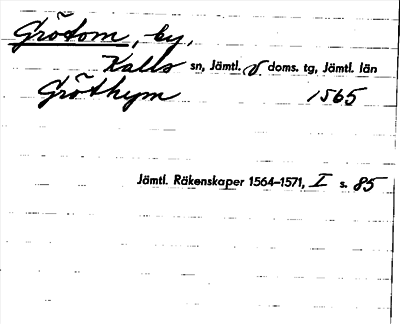 Grötom, by,
Kalls sn, Jämtl. v doms. tg, Jämtl. län
Gröthym 1565
Jämtl. Räkenskaper 1564–1571, I s. 85